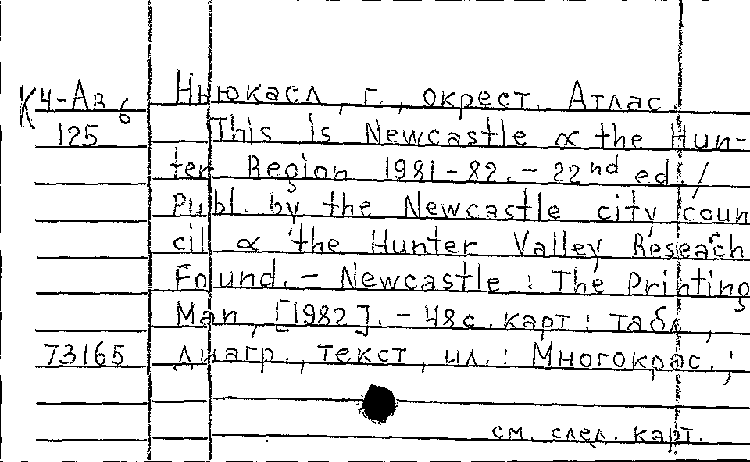 К4-Ав6 Ньюкасл, г., окрест. Атлас.
125 This is Newcastle & the Hun-
ter Region 1981-82. - 22nd ed. /
Publ. by the Newcastle city coun
cil & the Hunter Valley Reseach
Found. - Newcastle : The Printing
Man, [1982]. - 48с. карт : табл,
73165 диагр., текст, ил. : Многокрас. ;
см. след. карт.